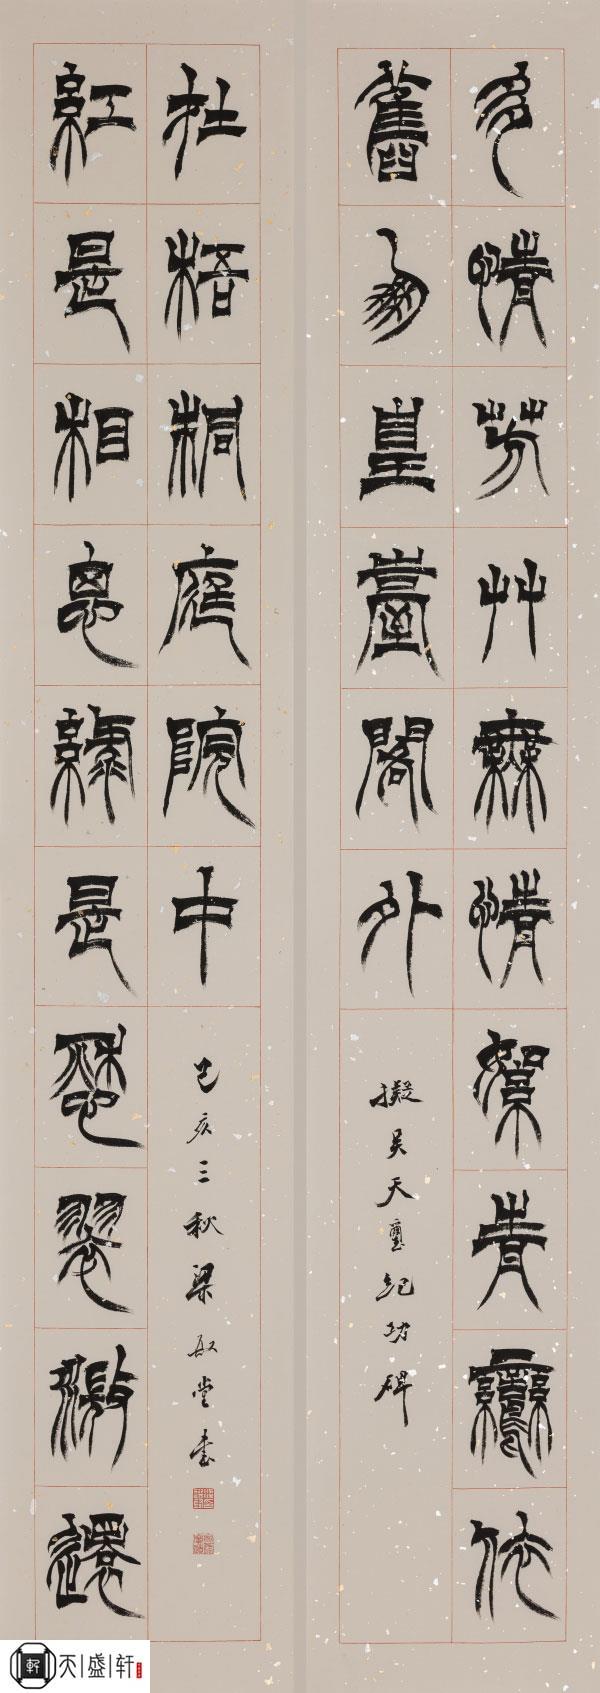 多情芳艸無情絮青鸞依
舊鳳皇臺閣外
擬吳天璽紀功碑
紅是相思綠是愁翠微還
在梧桐庭院中
己亥三秋梁 堂書
天盛轩